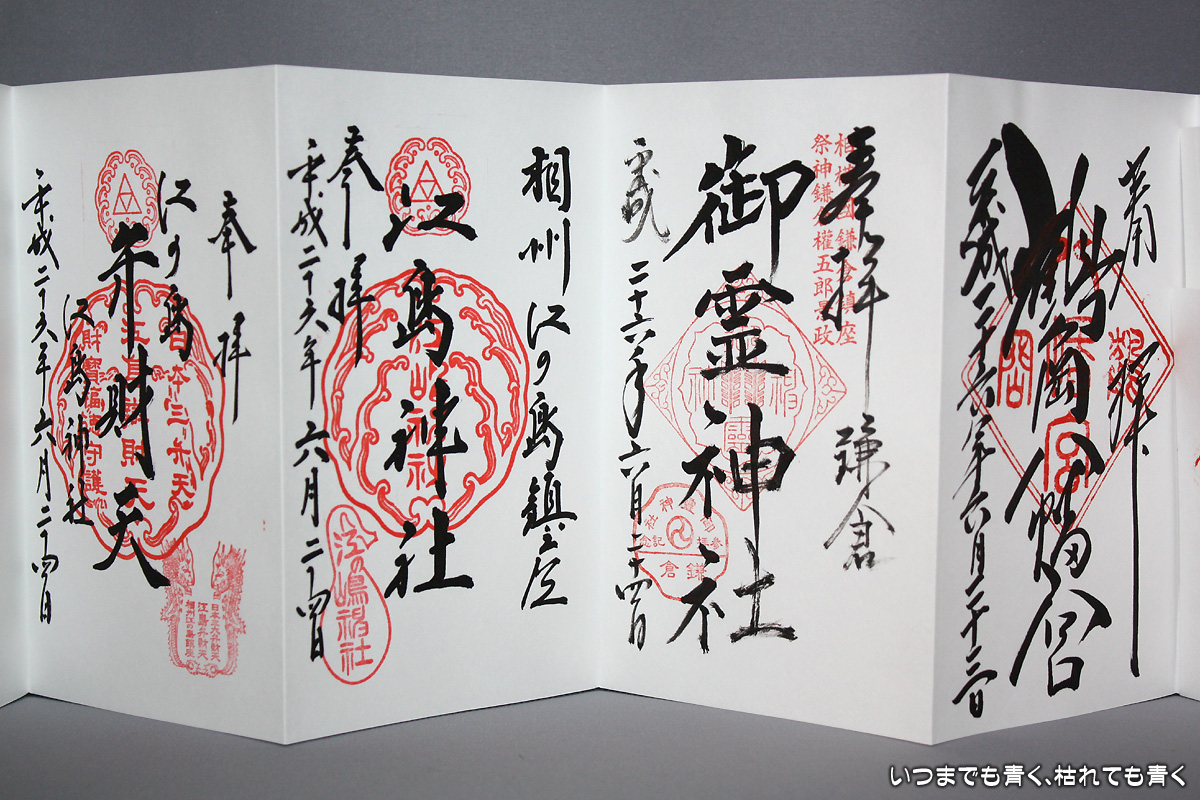 奉拝
鶴岡八幡宮
平成二十六年六月二十三日
奉拝
鎌倉
相模国鎌倉鎮座
祭神鎌倉權五郎景政
御霊神社
平成二十六年六月二十四日
鎌倉
相州江の島鎮座
江島神社
奉拝
平成二十六年六月二十四日
江の嶋神社
奉拝
江の島
弁財天
江島神社
平成二十六年六月二十四日
日本三大弁財天
江島弁財天
相州江の島鎮座
いつまでも青く、枯れても青く